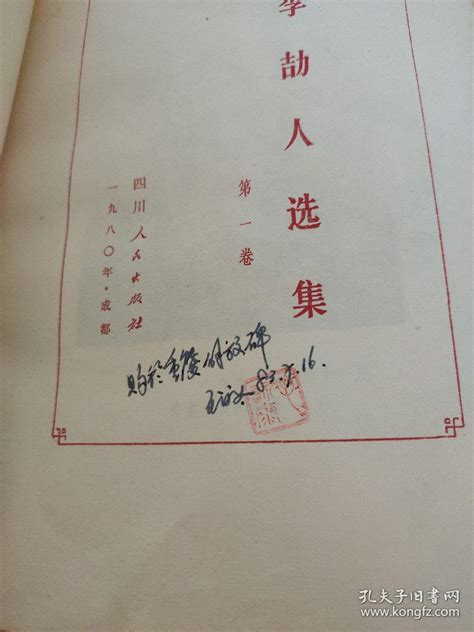 李劼人选集
第一卷
四川人民出版社
一九八〇年·成都
购於重庆解放碑
83.7.16.
孔夫子旧书网
www.kongfz.com